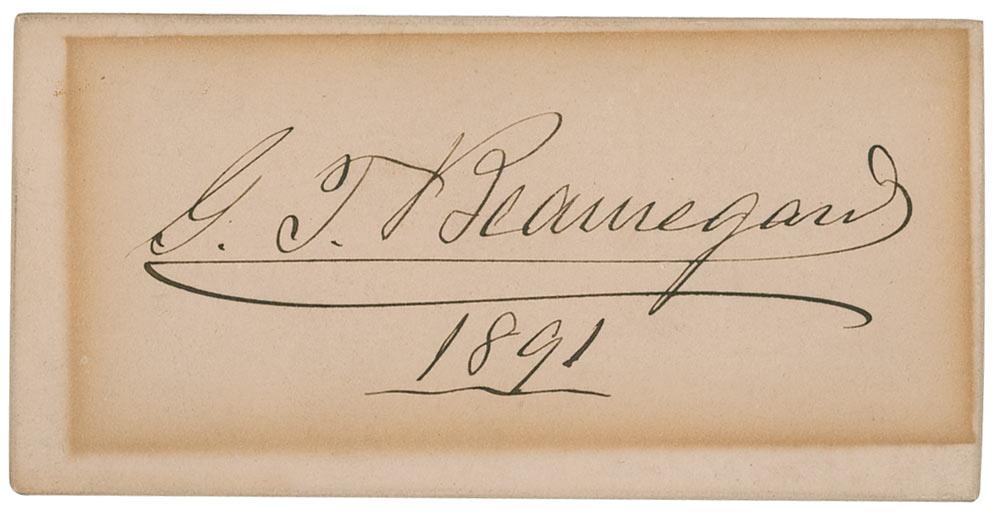 G. T. Beauregard
1891